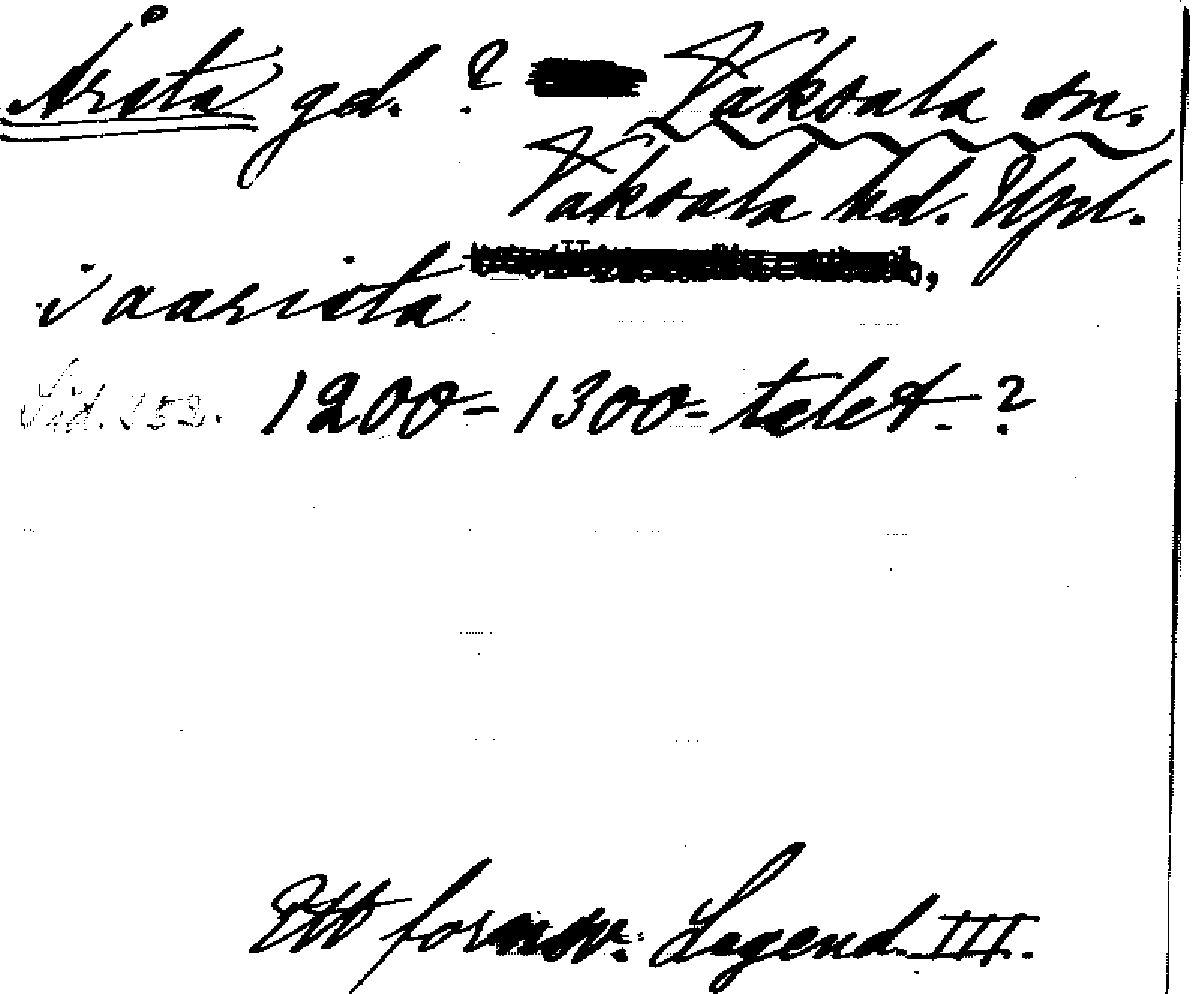 Årsta gd. ? Vaksala sn.
Vaksala hd. Upl.
i aarista
Sid. 252. 1200-1300-talet. ?
Ett fornsv. Legend. III.